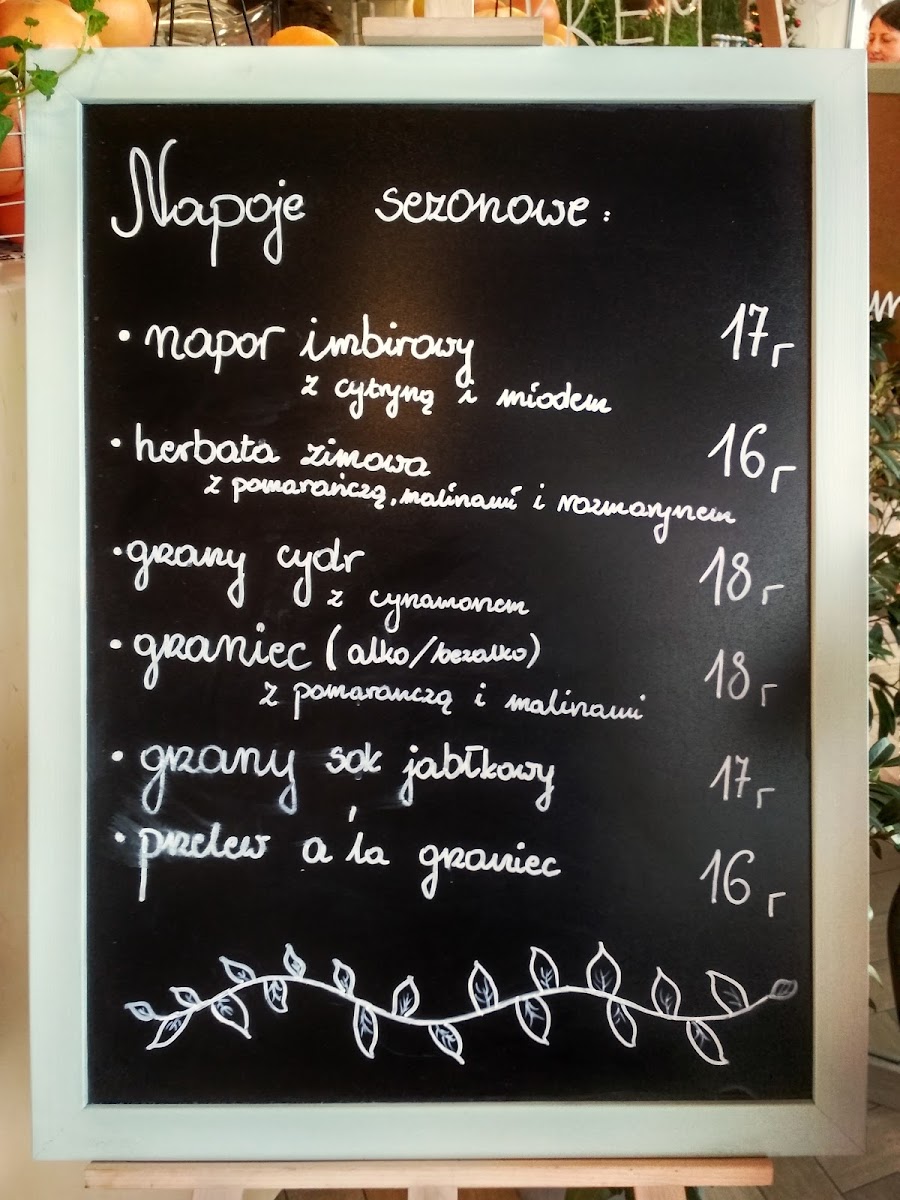 Napoje sezonowe:
• napar imbirowy 17,-
z cytryną i miodem
• herbata zimowa 16,-
z pomarańczą, malinami i rozmarynem
• grzany cydr 18,-
z cynamonem
• grzaniec (alko/bezalko) 18,-
z pomarańczą i malinami
• grzany sok jabłkowy 17,-
• przelew a'la grzaniec 16,-